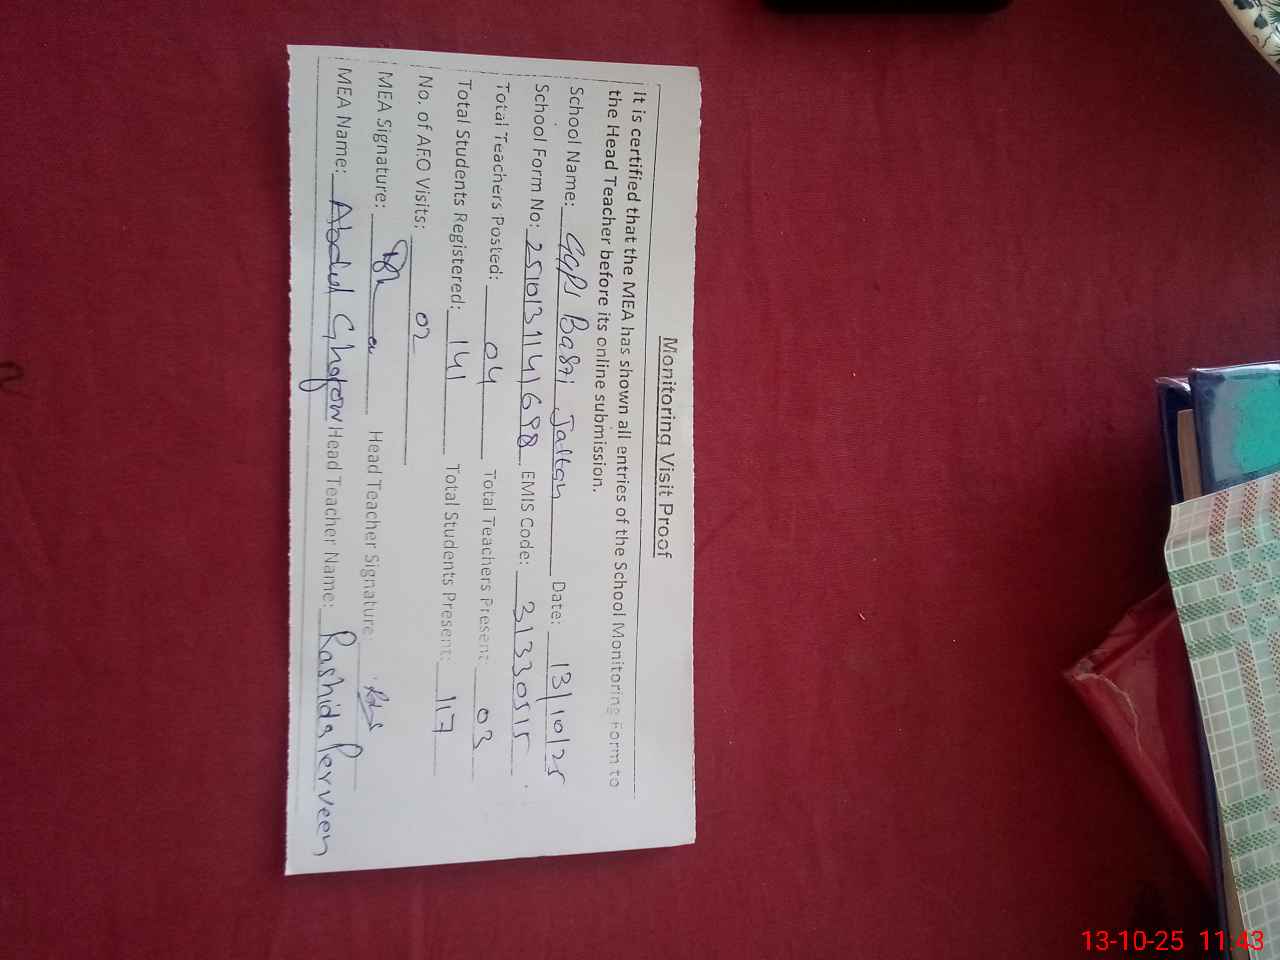 Monitoring Visit Proof
It is certified that the MEA has shown all entries of the School Monitoring Form to
the Head Teacher before its online submission.
School Name: GGPS Basti Jattan Date: 13/10/25
School Form No: 2510131141698 EMIS Code: 31330515
Total Teachers Posted: 04 Total Teachers Present: 03
Total Students Registered: 141 Total Students Present: 117
No. of AEO Visits: 02
MEA Signature: Head Teacher Signature:
MEA Name: Abdul Ghafoor Head Teacher Name: Rashida Perveen
13-10-25 11:43